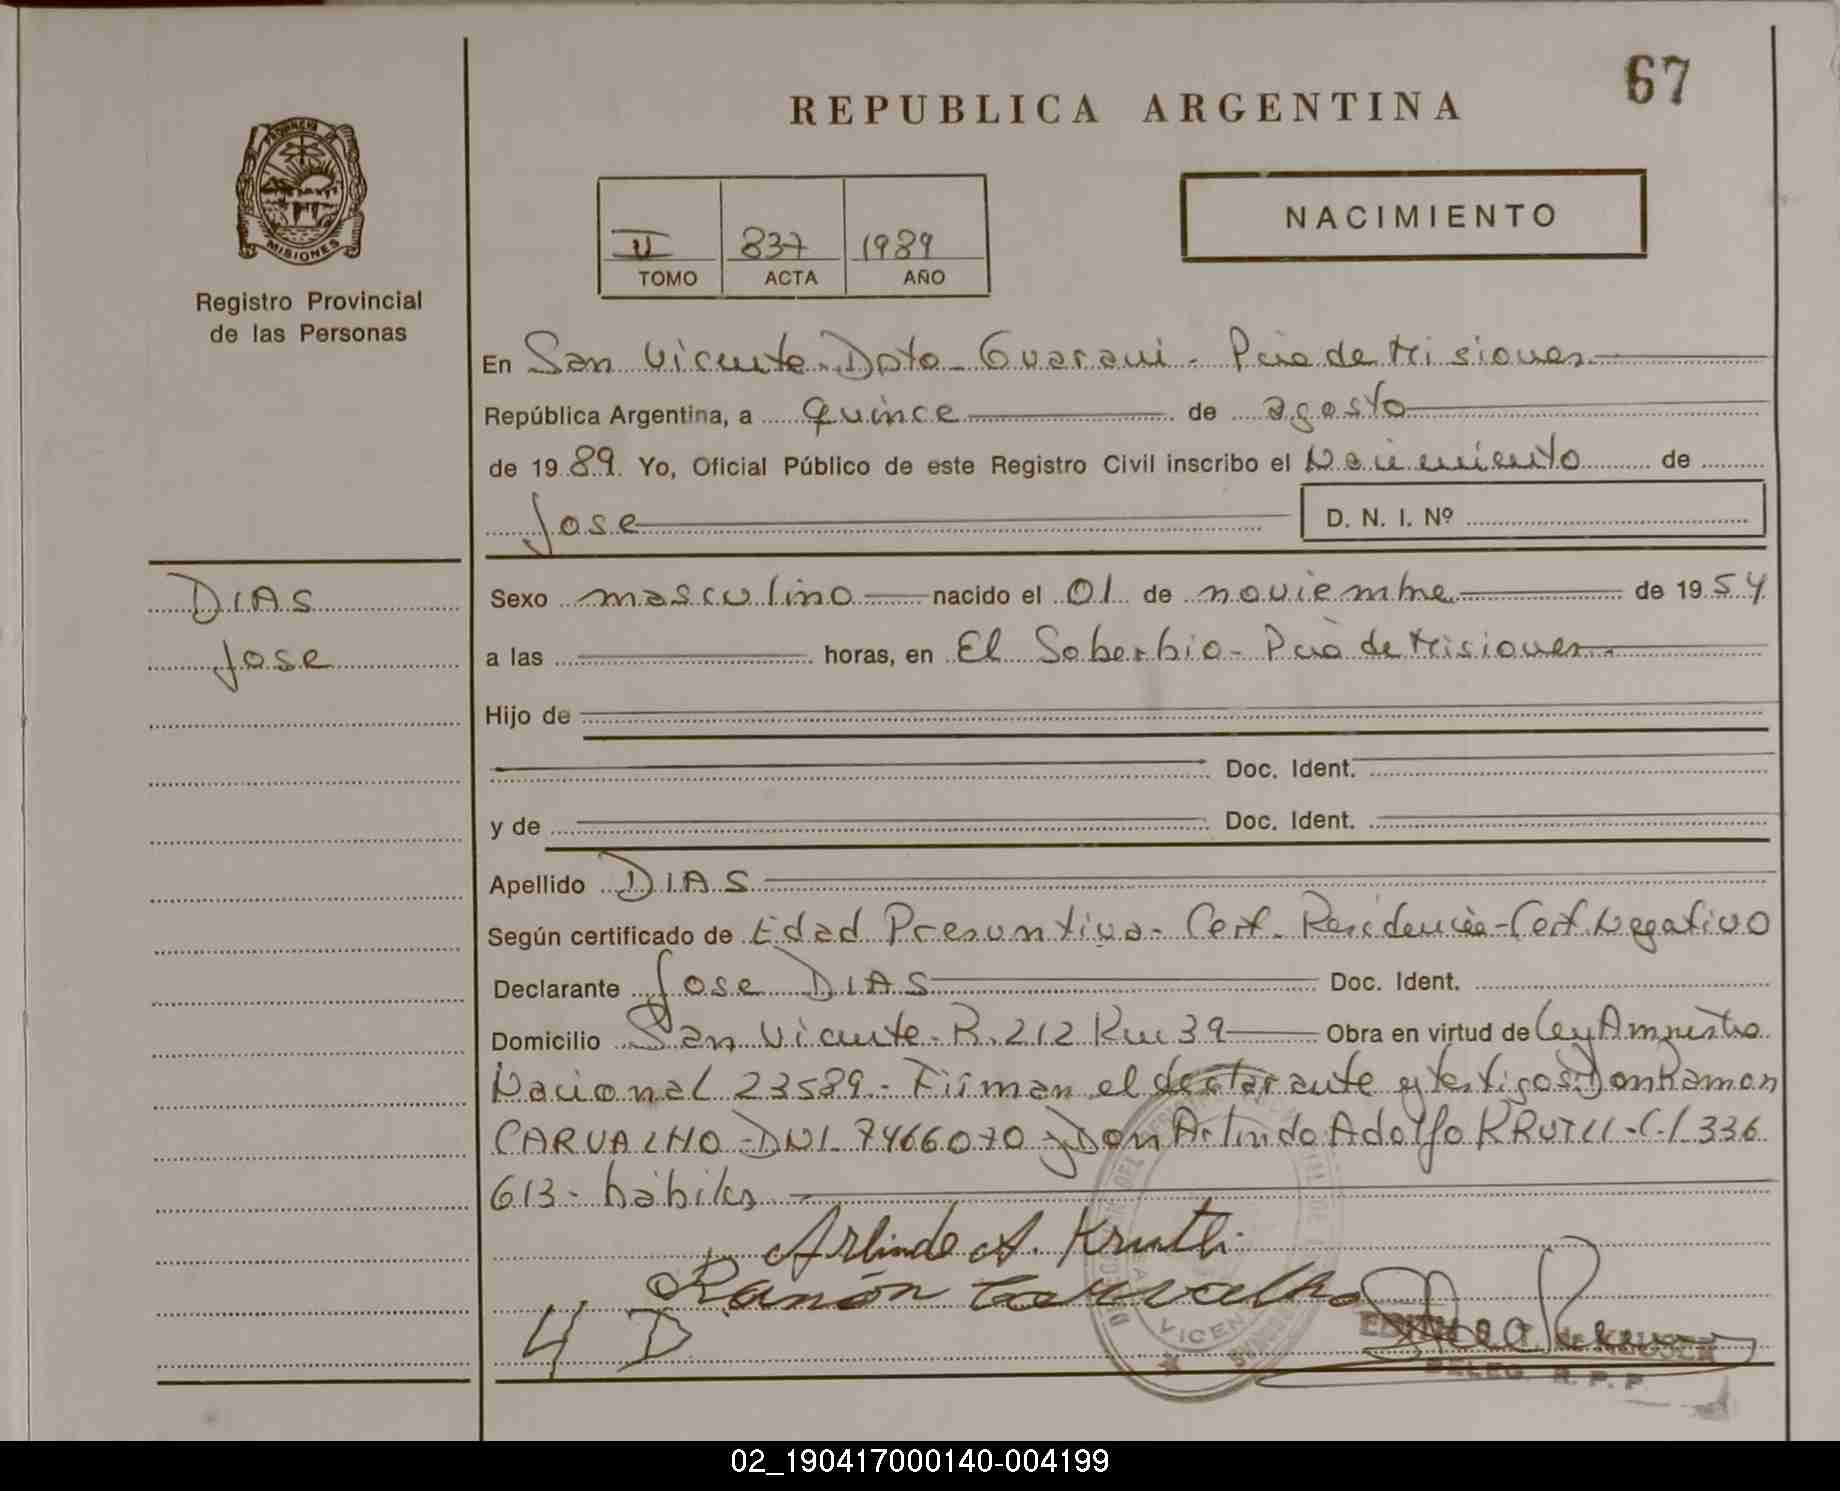 67
REPUBLICA ARGENTINA
PROVINCIA DE
MISIONES
Registro Provincial
de las Personas
NACIMIENTO
II 837 1989
TOMO ACTA AÑO
En San Vicente - Dpto - Guarani - Pcia de Misiones
República Argentina, a quince de agosto
de 1989. Yo, Oficial Público de este Registro Civil inscribo el Nacimiento de
Jose D. N. I. Nº
DIAS
Jose
Sexo masculino nacido el 01 de noviembre de 1954
a las horas, en El Soberbio - Pcia de Misiones
Hijo de
Doc. Ident.
y de Doc. Ident.
Apellido DIAS
Según certificado de Edad Presuntiva - Cert. Residencia - Cert. Negativo
Declarante Jose DIAS Doc. Ident.
Domicilio San Vicente - R. 212 Km 39 Obra en virtud de Ley Amnistia
Nacional 23589 - Firman el declarante y testigos: Don Ramon
CARVALHO - DNI 7466070 y Don Arlindo Adolfo KRUTLI - C.I. 336
613 - hábiles
Arlindo A. Krutli
Ramón Carvalho
VICEN
DELEG. R. P. P.
02_190417000140-004199